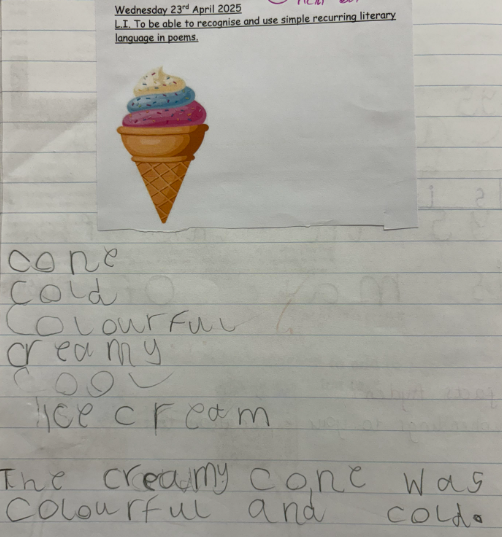 Wednesday 23rd April 2025
L.I. To be able to recognise and use simple recurring literary
language in poems.
cone
cold
colourful
creamy
cool
ice cream
The creamy cone was
colourful and cold.